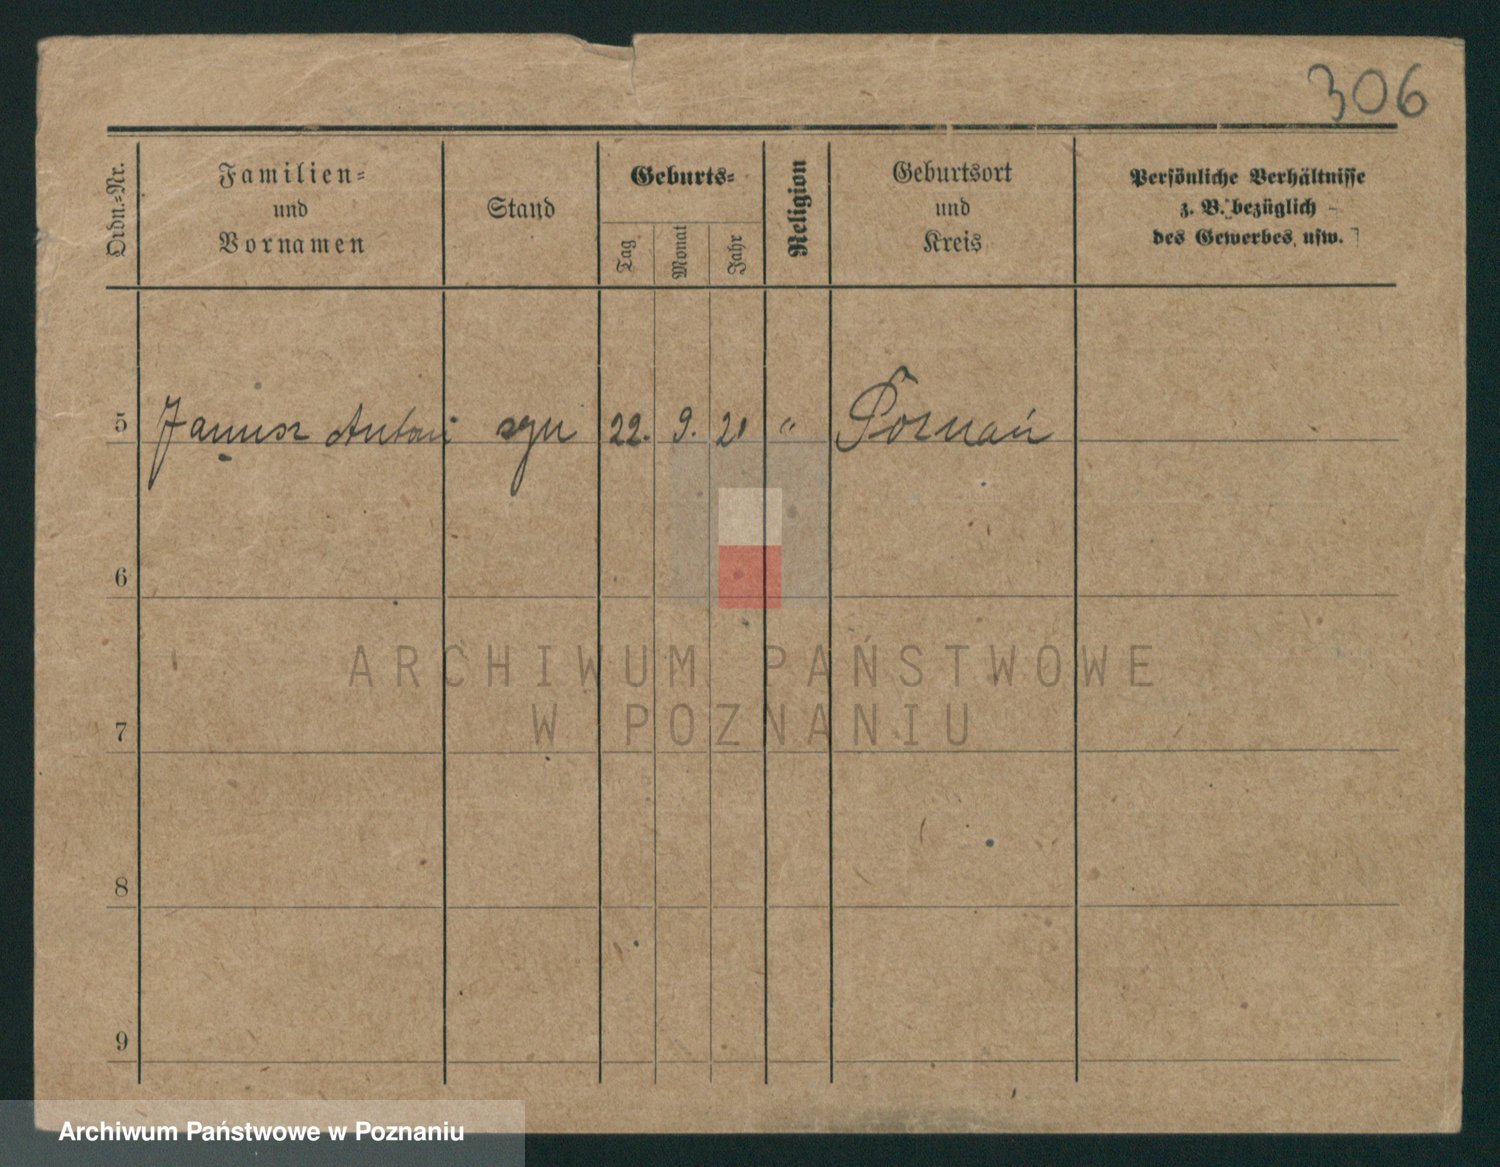 306
Ordn.-Nr.
Familien-
und
Vornamen
Stand
Geburts-
Tag
Monat
Jahr
Religion
Geburtsort
und
Kreis
Persönliche Verhältnisse
z. B. bezüglich
des Gewerbes usw.
5 Janusz Antoni syn 22. 9. 21 " Poznań
6
7
8
9
ARCHIWUM PAŃSTWOWE
W POZNANIU
Archiwum Państwowe w Poznaniu